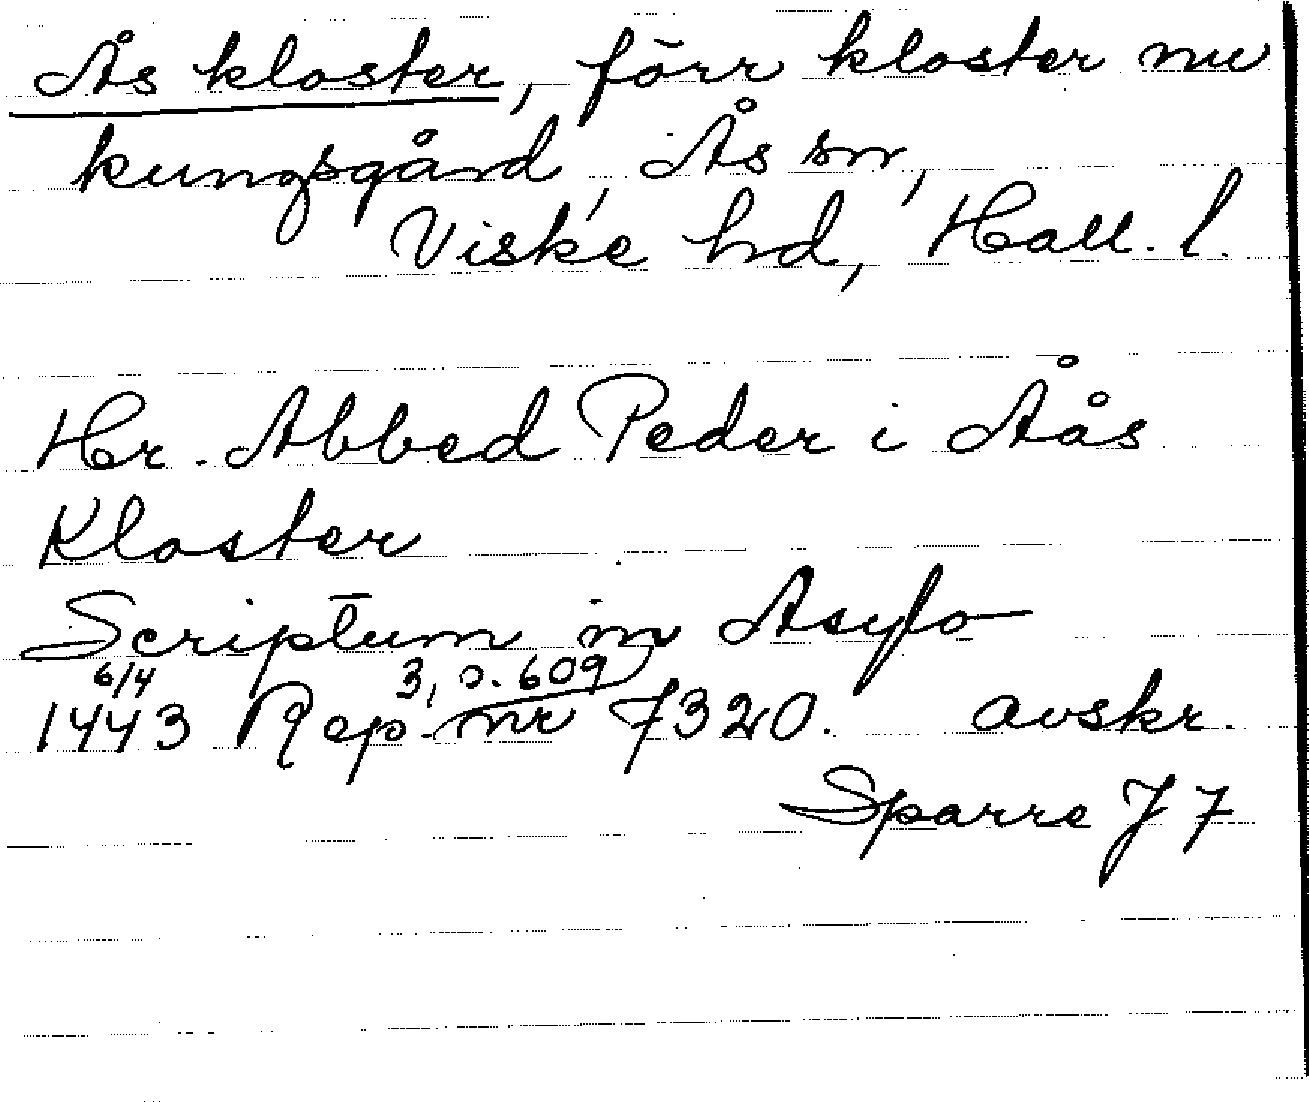 Ås kloster, förr kloster nu
kungsgård, Ås sn,
Viske hd, Hall. l.
Hr. Abbed Peder i Åås
Kloster
Scriptum in Asylo
6/4 3, s. 609
1443 Rep. nr 7320. avskr.
Sparre J 7